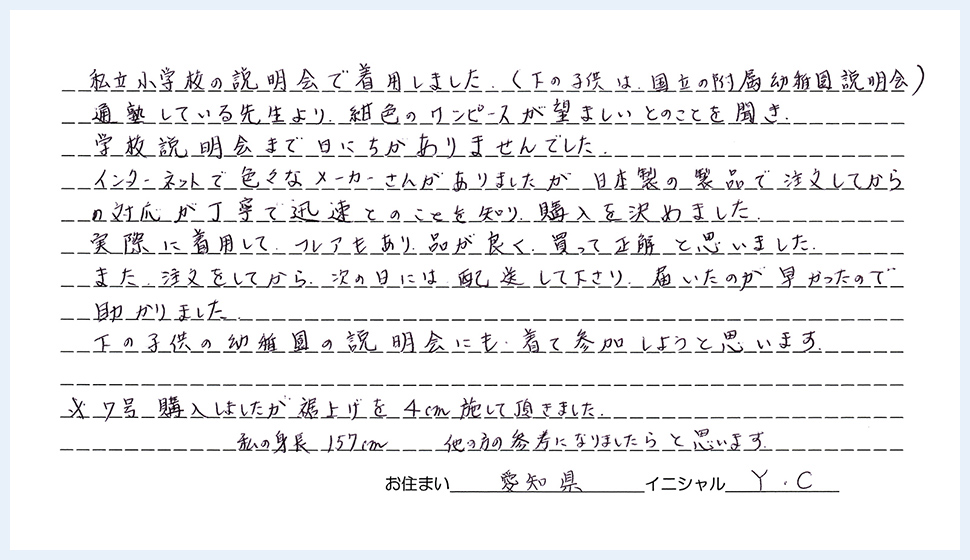 私立小学校の説明会で着用しました.(下の子供は.国立の附属幼稚園説明会)
通塾している先生より.紺色のワンピースが望ましいとのことを聞き.
学校説明会まで日にちがありませんでした.
インターネットで色々なメーカーさんがありましたが日本製の製品で注文してから
の対応が丁寧で迅速とのことを知り.購入を決めました.
実際に着用して.フレアもあり.品が良く.買って正解と思いました.
また.注文をしてから.次の日には.配送して下さり.届いたのが早かったので
助かりました.
下の子供の幼稚園の説明会にも.着て参加しようと思います.
※7号購入しましたが裾上げを4cm施して頂きました.
私の身長157cm 他の方の参考になりましたらと思います.
お住まい 愛知県 イニシャル Y.C